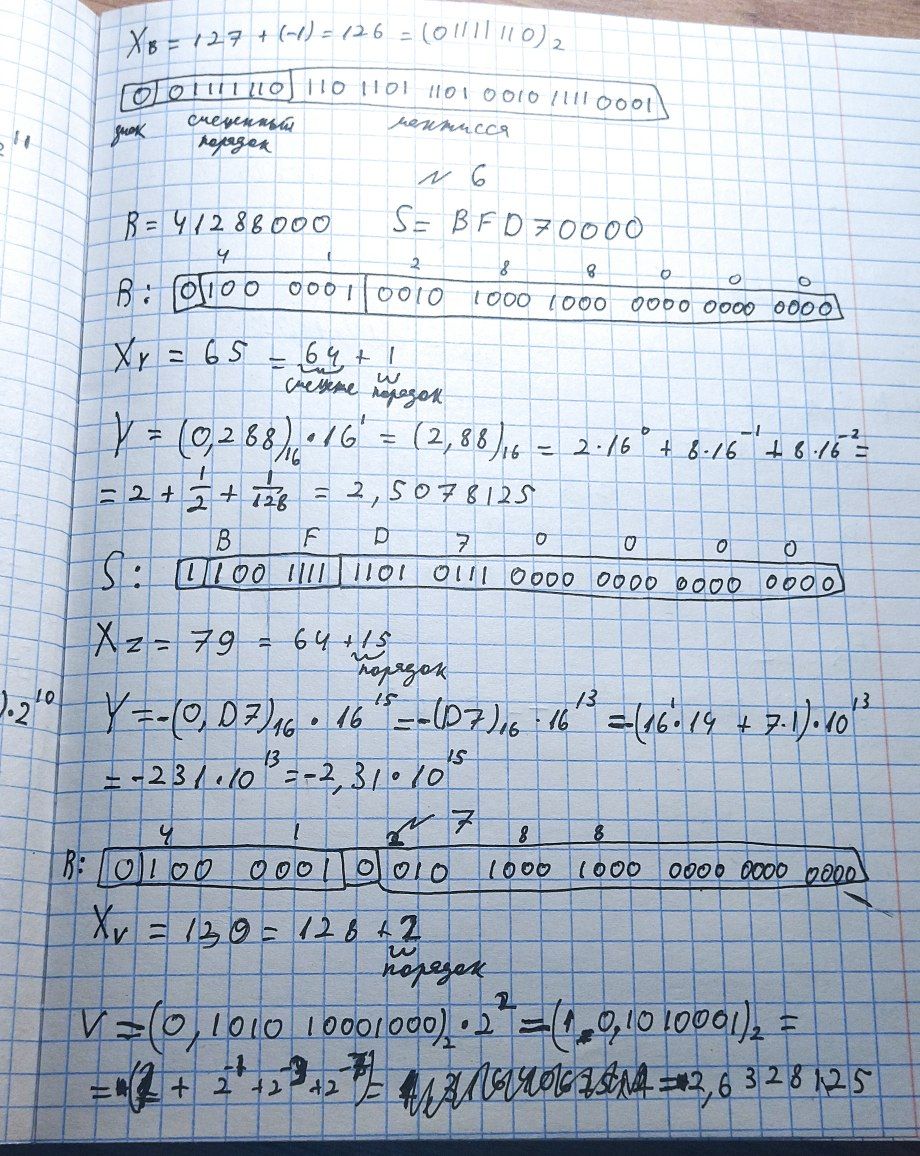 X_B = 127 + (-1) = 126 = (01111110)_2
0 01111110 110 1101 1101 0010 1111 0001
знак смещенный порядок мантисса
№ 6
R = 41288000 S = BFD70000
4 1 2 8 8 0 0 0
R: 0 100 0001 0010 1000 1000 0000 0000 0000
X_Y = 65 = 64 + 1
порядок
Y = (0,288)_16 · 16^1 = (2,88)_16 = 2·16^0 + 8·16^-1 + 8·16^-2 =
= 2 + 1/2 + 1/128 = 2,5078125
B F D 7 0 0 0 0
S: 1 100 1111 1101 0111 0000 0000 0000 0000
X_Z = 79 = 64 + 15
порядок
).2^10
Y = -(0,D7)_16 · 16^15 = -(D7)_16 · 16^13 = -(16^1·14 + 7·1)·10^13
= -231·10^13 = -2,31·10^15
№ 7
4 1 2 8 8
R: 0 100 0001 0 010 1000 1000 0000 0000 0000
X_V = 130 = 128 + 2
порядок
V = (0,1010 10001000)_2 · 2^2 = (10,1010001)_2 =
= (2 + 2^-1 + 2^-3 + 2^-7) = 2,6328125